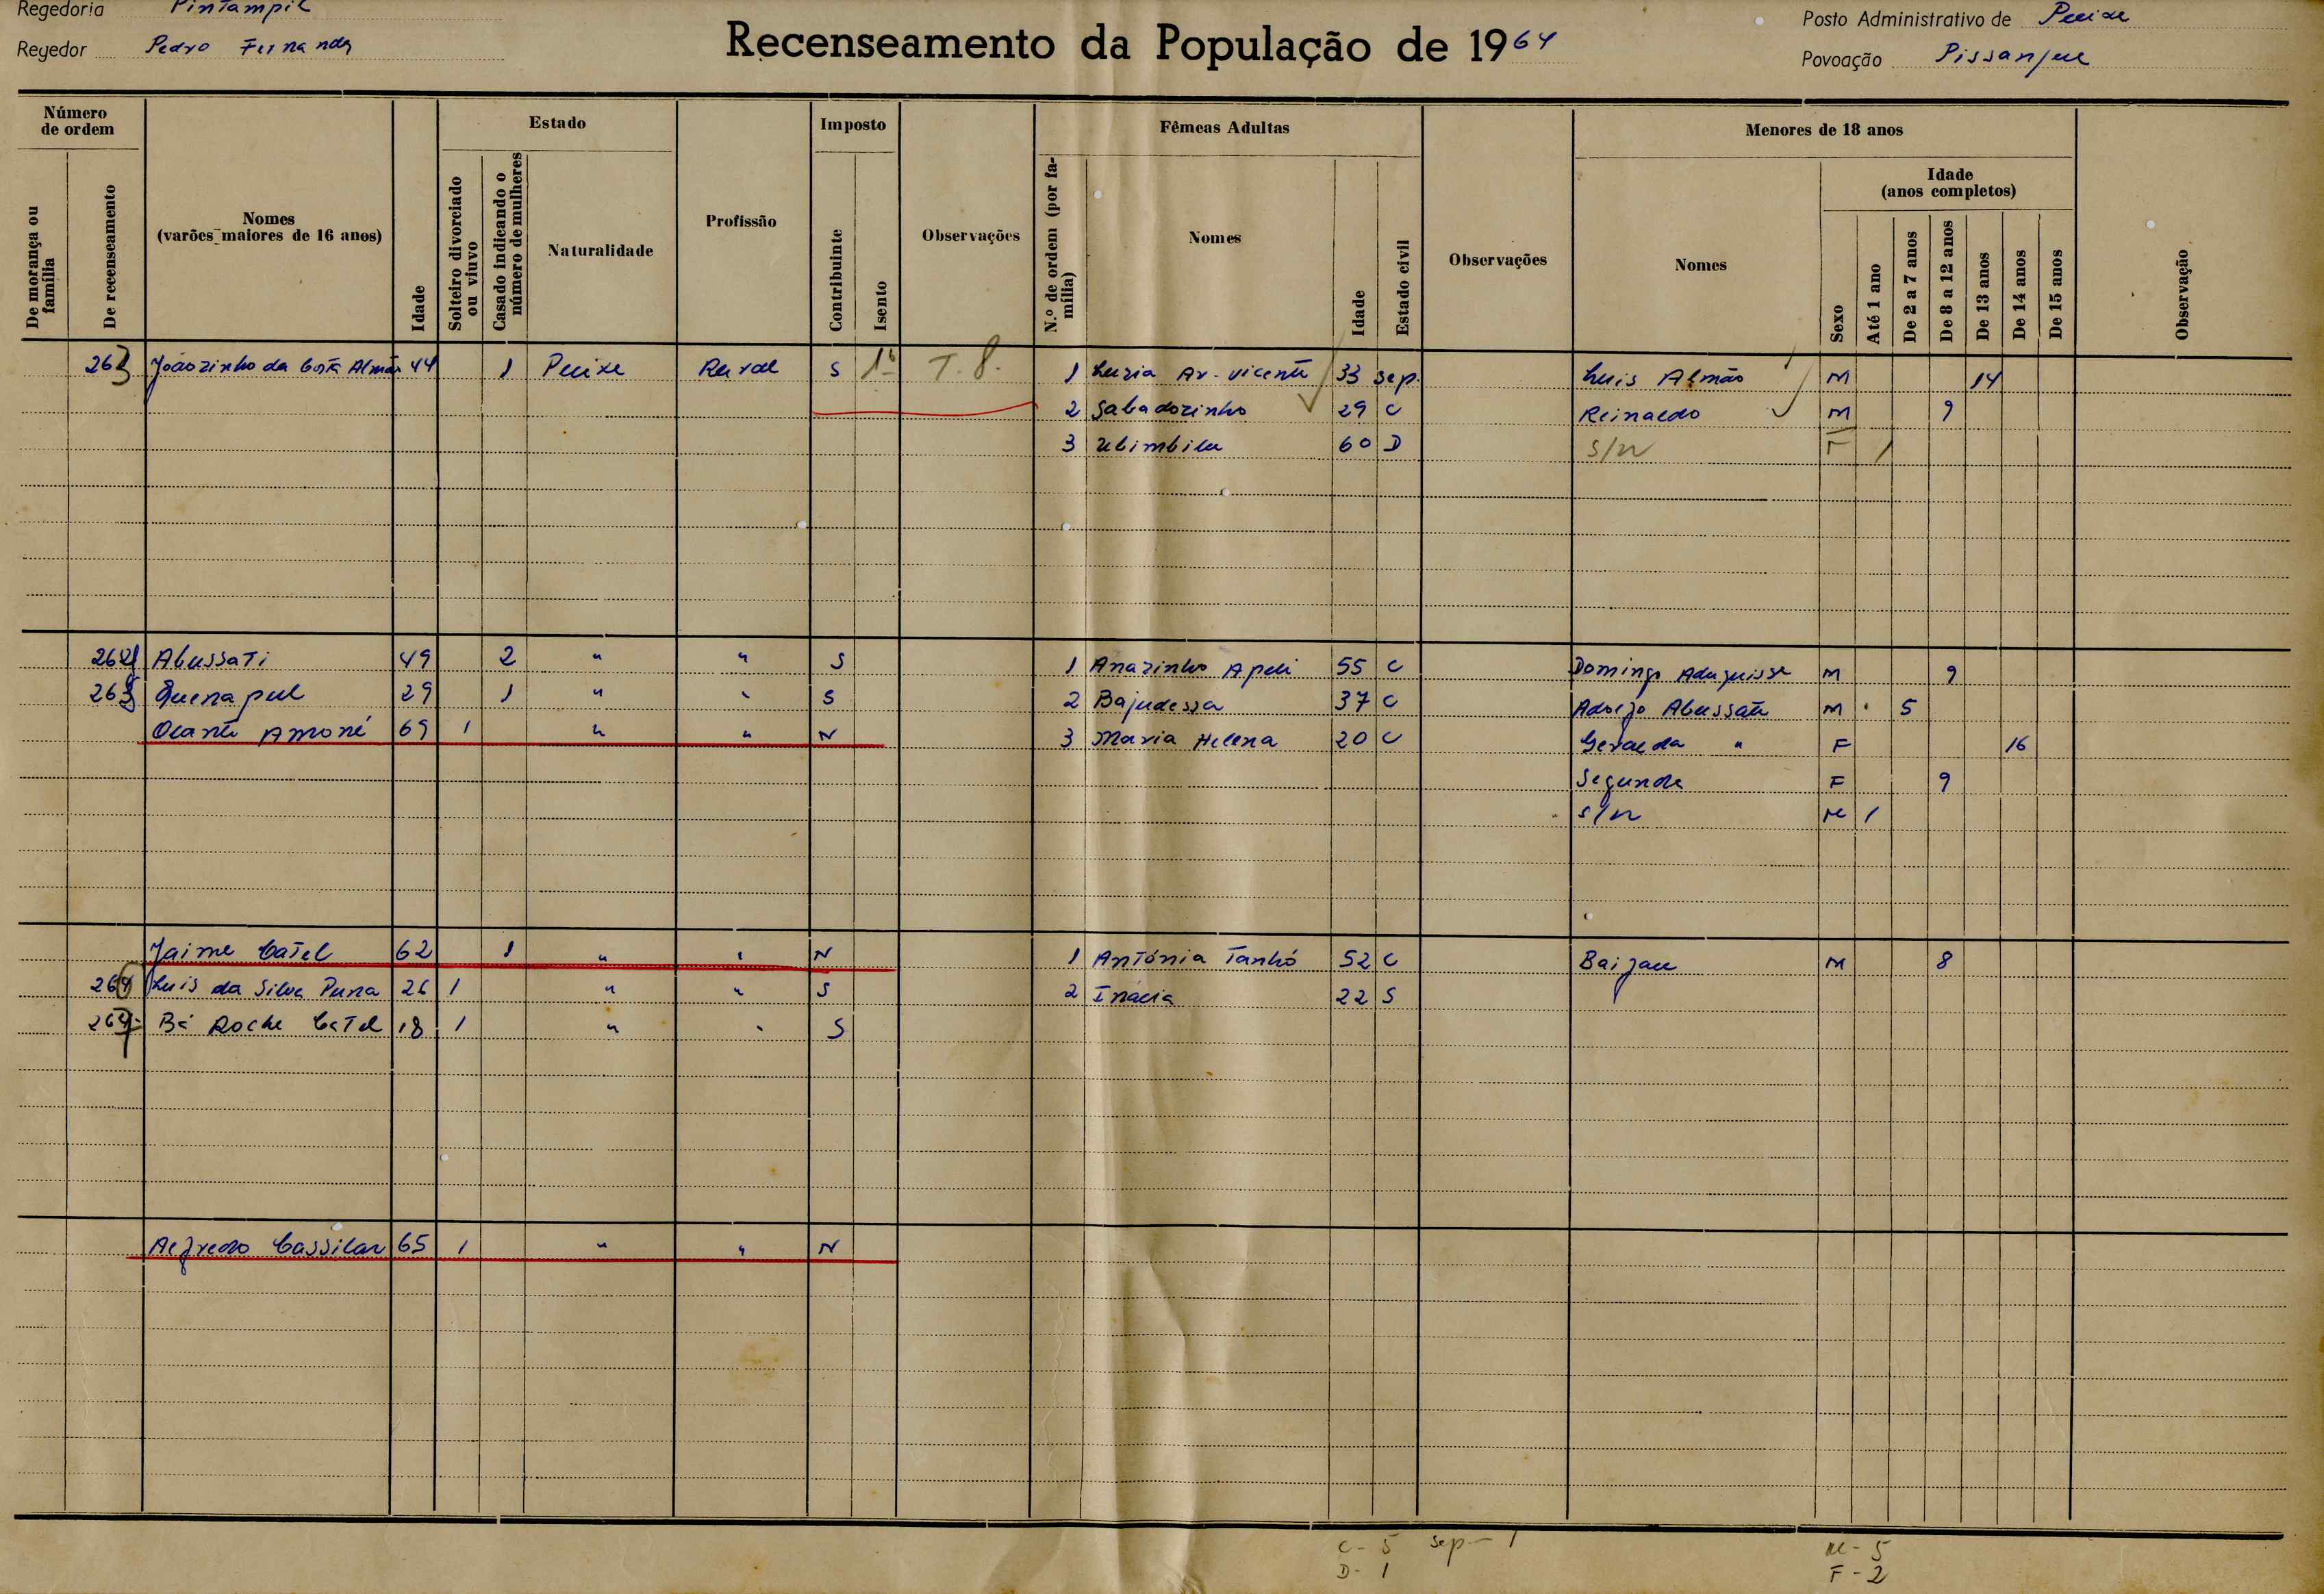 Regedoria Pintampil
Posto Administrativo de Pecixe
Regedor Pedro Fernandes
Recenseamento da População de 1964
Povoação
Número de ordem
De morança ou família
De recenseamento
Nomes (varões maiores de 16 anos)
Idade
Estado
Solteiro divorciado ou viuvo
Casado indicando o número de mulheres
Naturalidade
Profissão
Imposto
Contribuinte
Isento
Observações
Fêmeas Adultas
N.º de ordem (por família)
Nomes
Idade
Estado civil
Observações
Menores de 18 anos
Nomes
Idade (anos completos)
Sexo
Até 1 ano
De 2 a 7 anos
De 8 a 12 anos
De 13 anos
De 14 anos
De 15 anos
Observação
263 Joãozinho da Costa Almão 44 1 Pecixe Rural S T. 8. 1 Luzia Av. Vicente 33 sep. Luis Almão M 14
2 Sabadozinho 29 C Reinaldo M 9
3 Ubimbilu 60 D S/N F 1
264 Abussati 49 2 " " S 1 Anazinho Apili 55 C Domingo M 9
265 Quenapul 29 1 " " S 2 Bajudessa 37 C Adolfo Abussati M 5
Ocanti Amoné 69 1 " " N 3 Maria Helena 20 C Geralda " F 16
Segunda F 9
S/N M 1
Jaime Catel 62 1 " " N 1 Antónia Tanhó 52 C M 8
266 Luis da Silva Puna 26 1 " " S 2 Inácia 22 S
267 Bá Roche Catel 18 1 " " S
Alfredo Cassilar 65 1 " " N
C - 5 sep - 1
D - 1
M - 5
F - 2